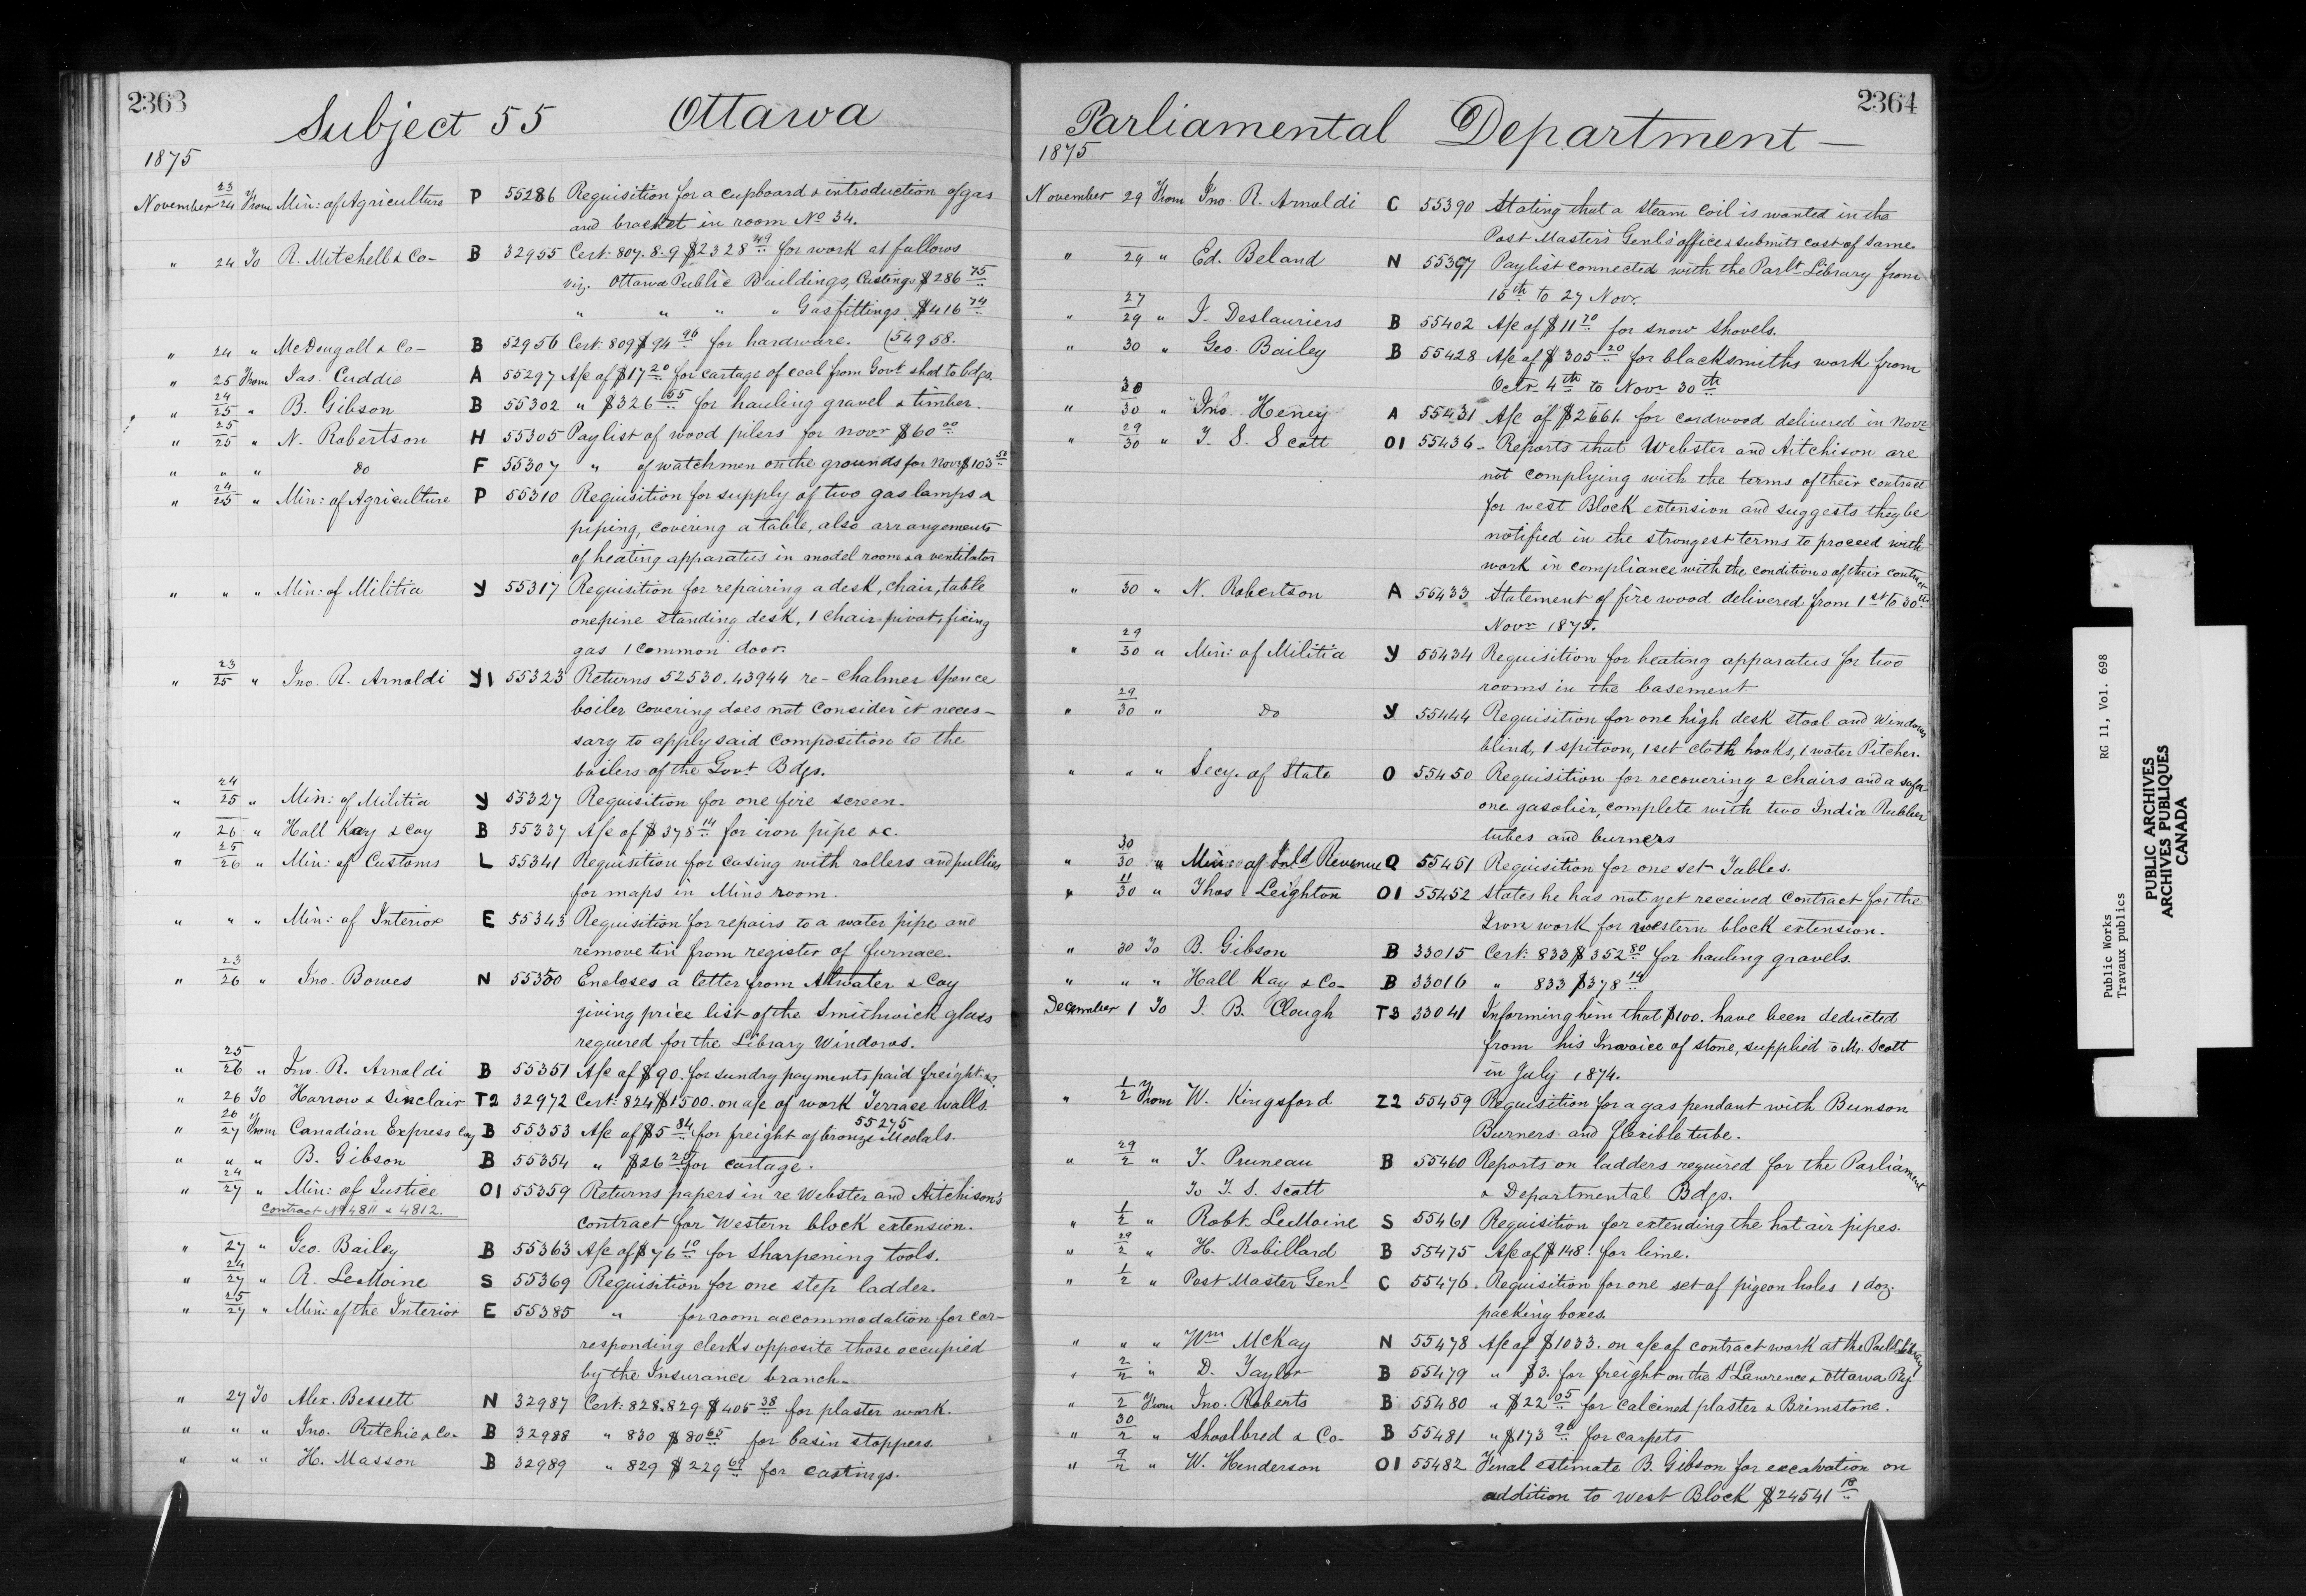 2363
Subject 55 Ottawa
1875
November 23/24 From Min: of Agriculture P 55286 Requisition for a cupboard & introduction of gas
and bracket in room No 34.
" 24 To R. Mitchell & Co- B 32955 Cert: 807.8.9 $2328 49 for work as follows
viz. Ottawa Public Buildings, Castings $286 75
" " " " Gasfittings $416 74
" 24 " McDougall & Co- B 52956 Cert: 809 $94 96 for hardware. (54958.
" 25 From Jas. Cuddie A 55297 A/c of $17 20 for cartage of coal from Govt shed to bdgs.
" 24/25 " B. Gibson B 55302 " $326 55 for hauling gravel & timber.
" 25/25 " N. Robertson H 55305 Paylist of wood pilers for Novr $60 00
" " " do F 55307 " of watchmen on the grounds for Novr $103 50
" 24/25 " Min: of Agriculture P 55310 Requisition for supply of two gas lamps &
piping, covering a table, also arrangements
of heating apparatus in model room & a ventilator
" " " Min: of Militia Y 55317 Requisition for repairing a desk, chair, table
one pine standing desk, 1 chair pivot, fixing
gas 1 common door.
" 23/25 " Jno. R. Arnoldi Y1 55323 Returns 52530.43944 re- Chalmer Spence
boiler covering does not consider it neces-
sary to apply said composition to the
boilers of the Govt Bdgs.
" 24/25 " Min: of Militia Y 55327 Requisition for one fire screen.
" 26 " Hall Kay & Coy B 55337 A/c of $378 14 for iron pipe &c.
" 25/26 " Min: of Customs L 55341 Requisition for casing with rollers and pullies
for maps in Min's room.
" " " Min: of Interior E 55343 Requisition for repairs to a water pipe and
remove tin from register of furnace.
" 23/26 " Jno. Bowes N 55350 Encloses a letter from Atwater & Coy
giving price list of the Smithwick glass
required for the Library Windows.
" 25/26 " Jno. R. Arnoldi B 55351 A/c of $90. for sundry payments paid freight &c.
" 26 To Harrow & Sinclair T2 32972 Cert: 824 $1500. on a/c of work Terrace walls.
" 26/27 From Canadian Express Coy B 55353 A/c of $5 84 for freight of bronze Medals. 55275
" " " B. Gibson B 55354 " $26 25 for cartage.
" 24/27 " Min: of Justice O1 55359 Returns papers in re Webster and Aitchison's
Contract No 4811 & 4812.
contract for Western block extension.
" 27 " Geo. Bailey B 55363 A/c of $76 10 for sharpening tools.
" 24/27 " R. LeMoine S 55369 Requisition for one step ladder.
" 25/27 " Min: of the Interior E 55385 " for room accommodation for cor-
responding clerks opposite those occupied
by the Insurance branch-
" 27 To Alex. Bessett N 32987 Cert: 828.829 $405 38 for plaster work.
" " " Jno. Ritchie & Co- B 32988 " 830 $80 65 for basin stoppers.
" " " H. Masson B 32989 " 829 $229 69 for castings.
2364
Parliamental Department —
1875
November 29 From Jno. R. Arnoldi C 55390 Stating that a steam coil is wanted in the
Post Masters Genl's office & submits cost of same.
" 29 " Ed. Beland N 55397 Paylist connected with the Parlt Library from
15th to 27 Novr.
" 27/29 " J. Deslauriers B 55402 A/c of $11 70 for snow shovels.
" 30 " Geo. Bailey B 55428 A/c of $305 20 for blacksmiths work from
Octr. 4th to Novr 30th
" 30/30 " Jno. Heney A 55431 A/c of $2661. for cordwood delivered in Novr
" 29/30 " T. S. Scott O1 55436 - Reports that Webster and Aitchison are
not complying with the terms of their contract
for west Block extension and suggests they be
notified in the strongest terms to proceed with
work in compliance with the conditions of their contract
" 30 " N. Robertson A 56433 Statement of fire wood delivered from 1st to 30th
Novr 1875.
" 29/30 " Min: of Militia Y 55434 Requisition for heating apparatus for two
rooms in the basement
" 29/30 " do Y 55444 Requisition for one high desk stool and Window
blind, 1 spitoon, 1 set cloth hooks, 1 water Pitcher.
" " " Secy. of State O 55450 Requisition for recovering 2 chairs and a sofa
one gasolier, complete with two India Rubber
tubes and burners
" 30/30 " Min: of Inld Revenue Q 55451 Requisition for one set Tables.
" 11/30 " Thos Leighton O1 55452 States he has not yet received contract for the
Iron work for western block extension.
" 30 To B. Gibson B 33015 Cert: 833 $352 80 for hauling gravels.
" " " Hall Kay & Co- B 33016 " 833 $378 14
December 1 To J. B. Clough T3 33041 Informing him that $100. have been deducted
from his Invoice of stone, supplied to Mr. Scott
in July 1874.
" 1/2 From W. Kingsford Z2 55459 Requisition for a gas pendant with Bunson
Burners and flexible tube.
" 29/2 " T. Pruneau B 55460 Reports on ladders required for the Parliament
To T. S. Scott & Departmental Bdgs.
" 1/2 " Robt. LeMoine S 55461 Requisition for extending the hot air pipes.
" 29/2 " H. Robillard B 55475 A/c of $148. for lime.
" 1/2 " Post Master Genl C 55476. Requisition for one set of pigeon holes 1 doz.
packing boxes.
" " " Wm McKay N 55478 A/c of $1033. on a/c of contract work at the Parlt Library
" 2/2 " D. Taylor B 55479 " $3. for freight on the St Lawrence & Ottawa Ry.
" 2 From Jno. Roberts B 55480 " $22 05 for calcined plaster & Brimstone.
" 30/2 " Shoolbred & Co- B 55481 " $173 90 for carpets
" 9/2 " W. Henderson O1 55482 Final estimate B. Gibson for excavation on
addition to West Block $24541 18
Public Works RG 11, Vol. 698
Travaux publics
PUBLIC ARCHIVES
ARCHIVES PUBLIQUES
CANADA